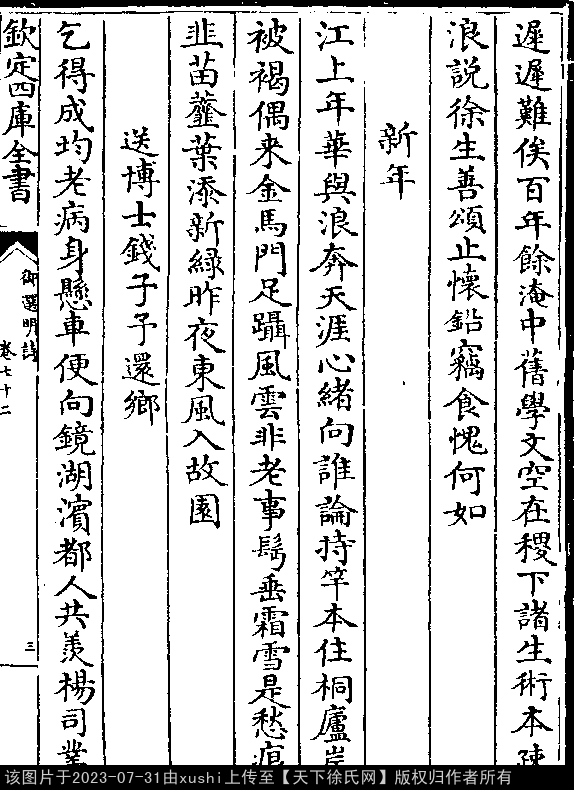 遲遲難俟百年餘淹中舊學文空在稷下諸生術本陳
浪說徐生善頌止懷鉛竊食愧何如
新年
江上年華與浪奔天涯心緒向誰論持竿本住桐廬岸
被褐偶来金馬門足躡風雲非老事髩垂霜雪是愁痕
韭苗虀葉添新緑昨夜東風入故園
送博士錢子予還鄉
乞得成均老病身懸車便向鏡湖濱都人共羡楊司業
欽定四庫全書
御選明詩
卷七十二
三
该图片于2023-07-31由xushi上传至【天下徐氏网】版权归作者所有